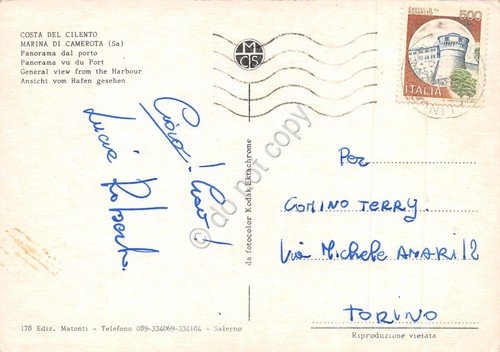 COSTA DEL CILENTO
MARINA DI CAMEROTA (Sa)
Panorama dal porto
Panorama vu du Port
General view from the Harbour
Ansicht vom Hafen gesehen
MCS
CASTELLO DI
ROVERETO
500
ITALIA
Ciao! Ciao!
Lucia Roberto
do not copy
da fotocolor Kodak Ektachrome
Per
COMINO TERRY.
Via Michele AMARI 12
TORINO
178 Ediz. Matonti - Telefono 089-334069-334104 - Salerno
Riproduzione vietata